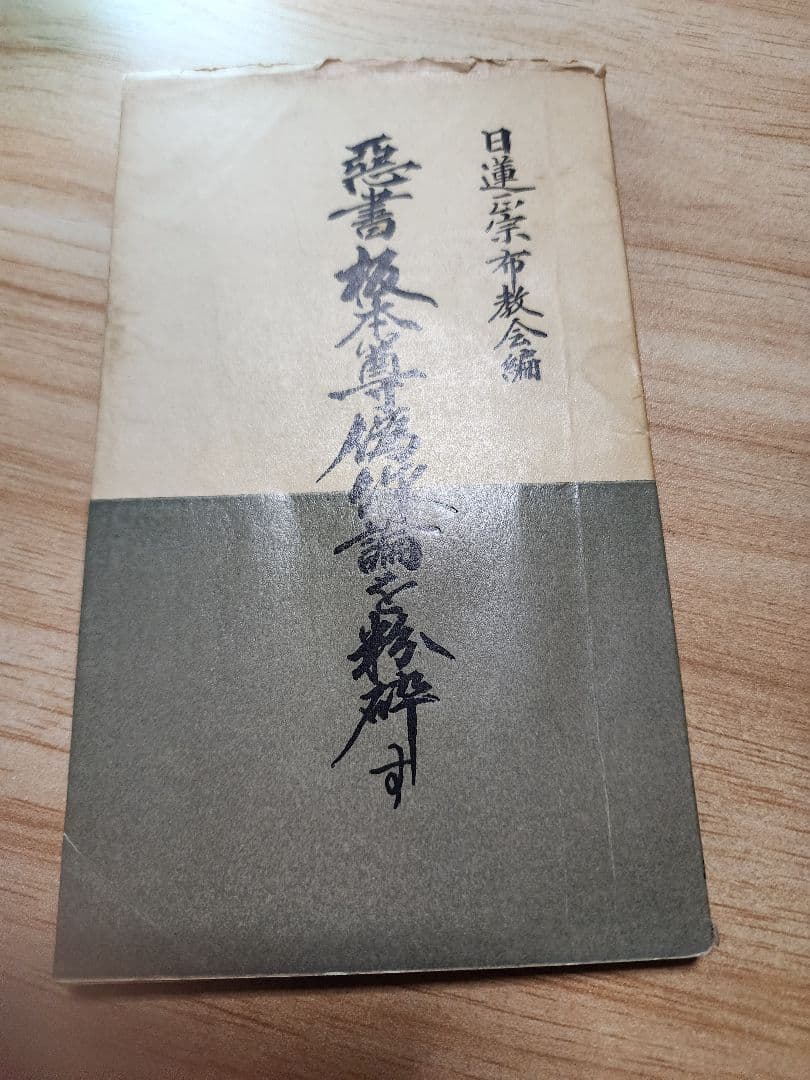 日蓮正宗布教会編
悪書板本尊偽作論を粉砕す